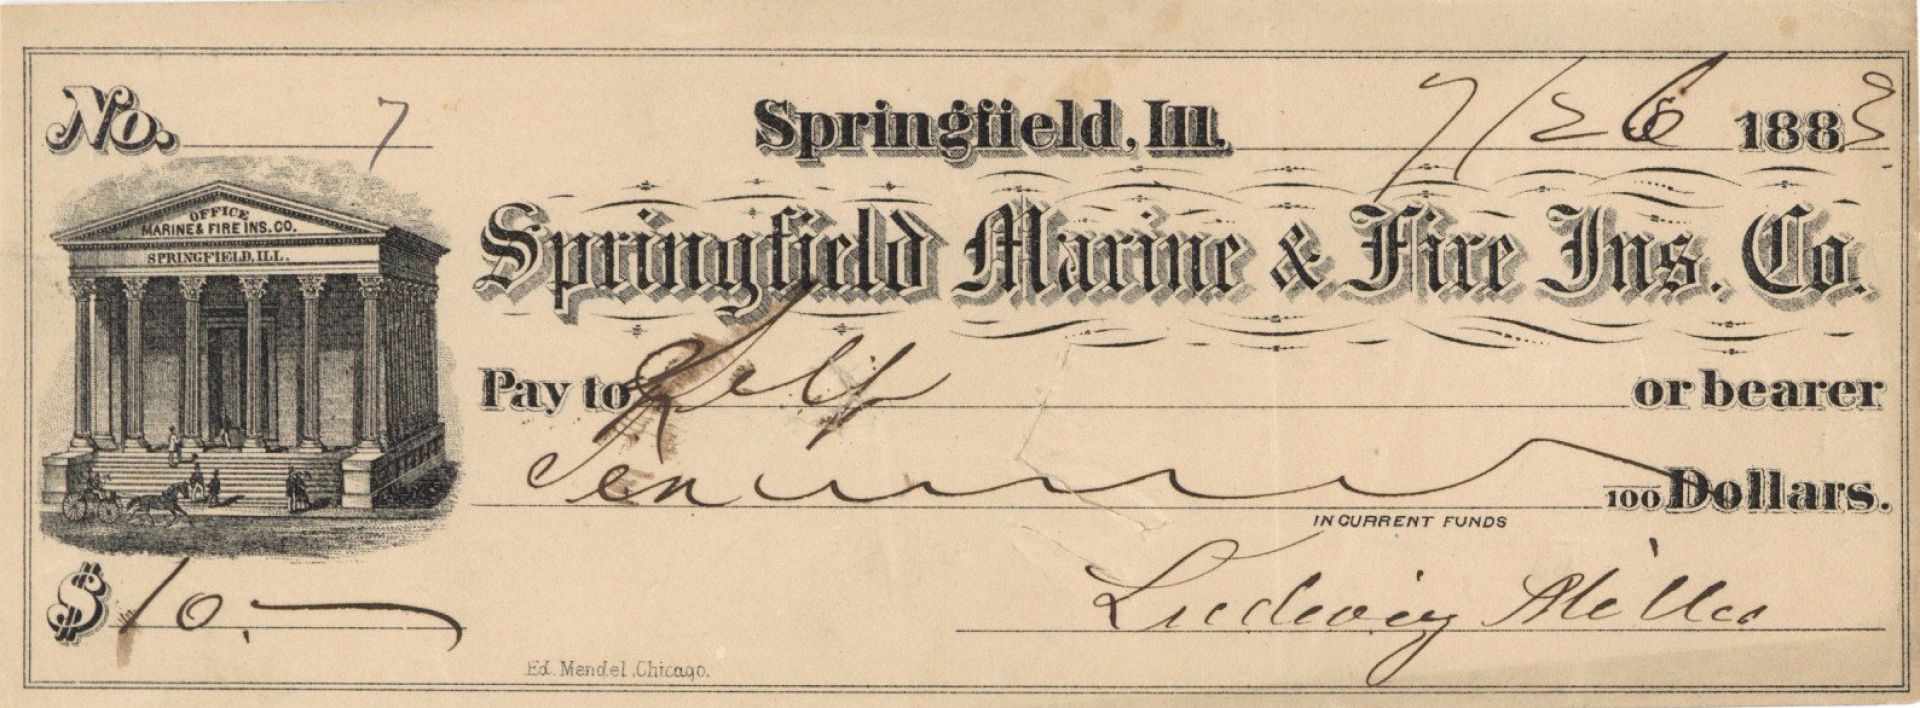 No. 7
Springfield, Ill. 7/26 1883
OFFICE
MARINE & FIRE INS. CO.
SPRINGFIELD, ILL.
Springfield Marine & Fire Ins. Co.
Pay to Self or bearer
Ten 100 Dollars.
IN CURRENT FUNDS
$ 10.—
Ludwig Miller
Ed. Mendel, Chicago.